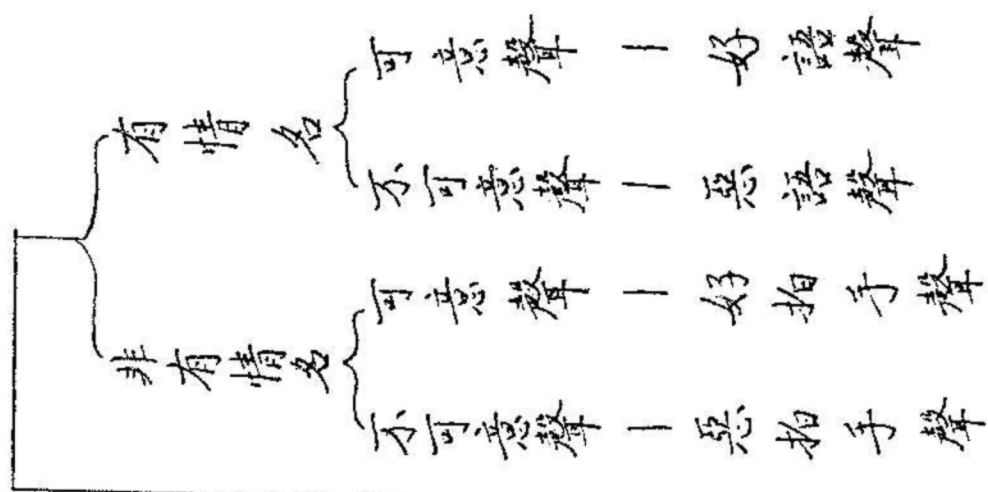 有情名
可意聲 — 好語聲
不可意聲 — 惡語聲
非有情名
可意聲 — 好拍手聲
不可意聲 — 惡拍手聲